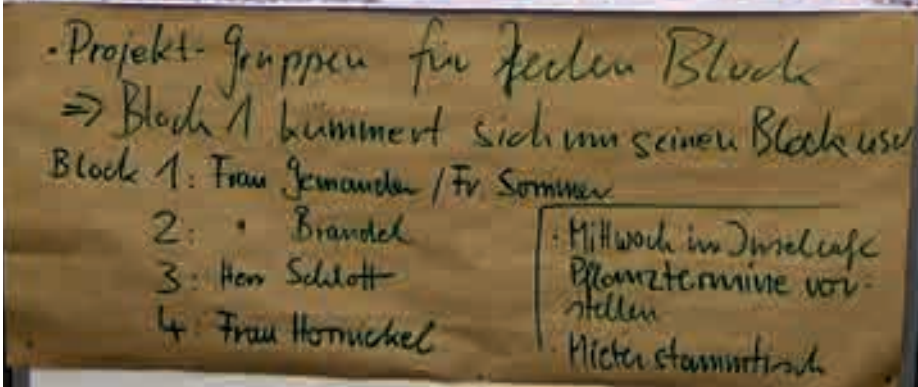 · Projekt-Gruppen für jeden Block
⇒ Block 1 kümmert sich um seinen Block usw
Block 1: Frau Jemander / Fr Sommer
2: " Brändel
3: Herr Schlott
4: Frau Hornickel
· Mittwoch im Inselcafe
Pflanztermine vor-
stellen
· Mieterstammtisch